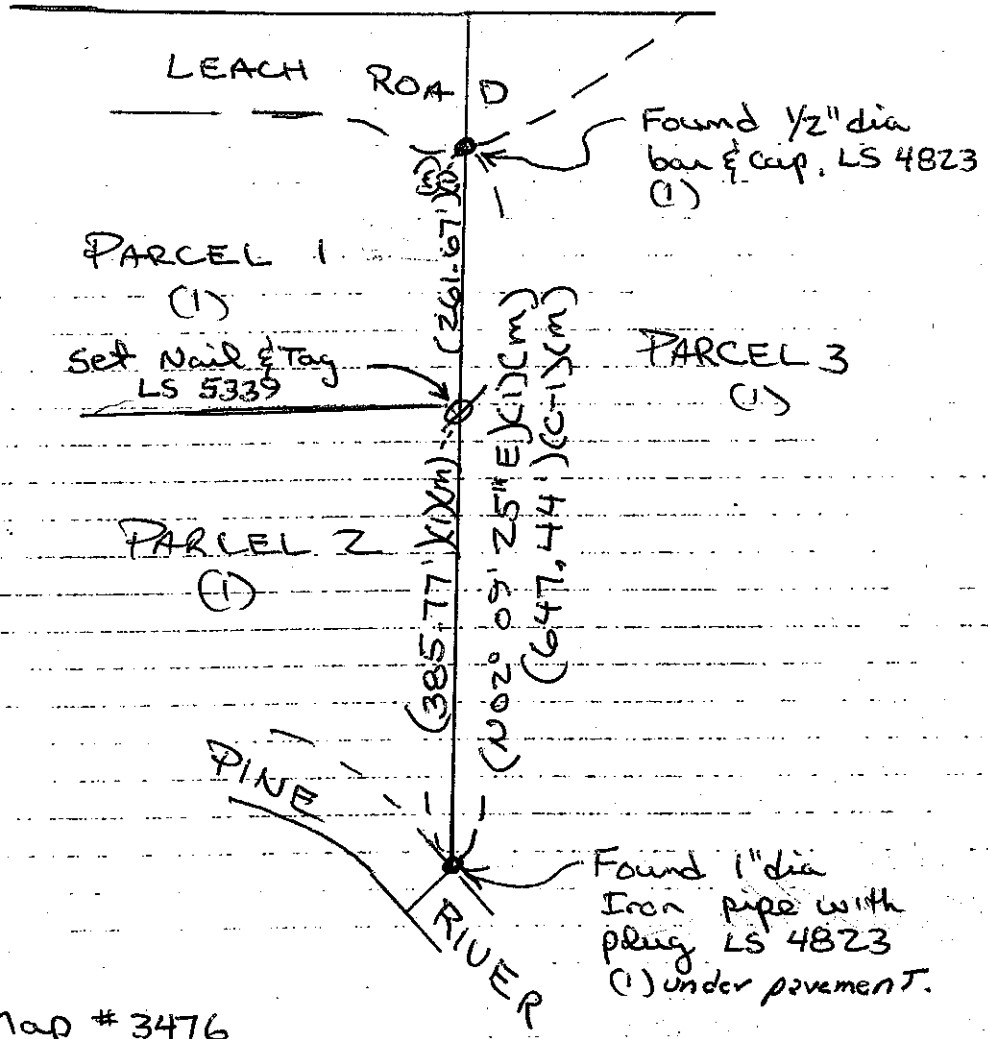 LEACH ROAD
Found 1/2" dia
bar & cap, LS 4823
(1)
PARCEL 1
(1)
(261.67')(1)
Set Nail & Tag
LS 5339
PARCEL 3
(1)
PARCEL 2
(1)
(385.77')(1)(m)
(N02° 09' 25" E)(1)(m)
(647.44')(C-1)(m)
PINE
RIVER
Found 1" dia
Iron pipe with
plug LS 4823
(1) under pavement.
Map # 3476